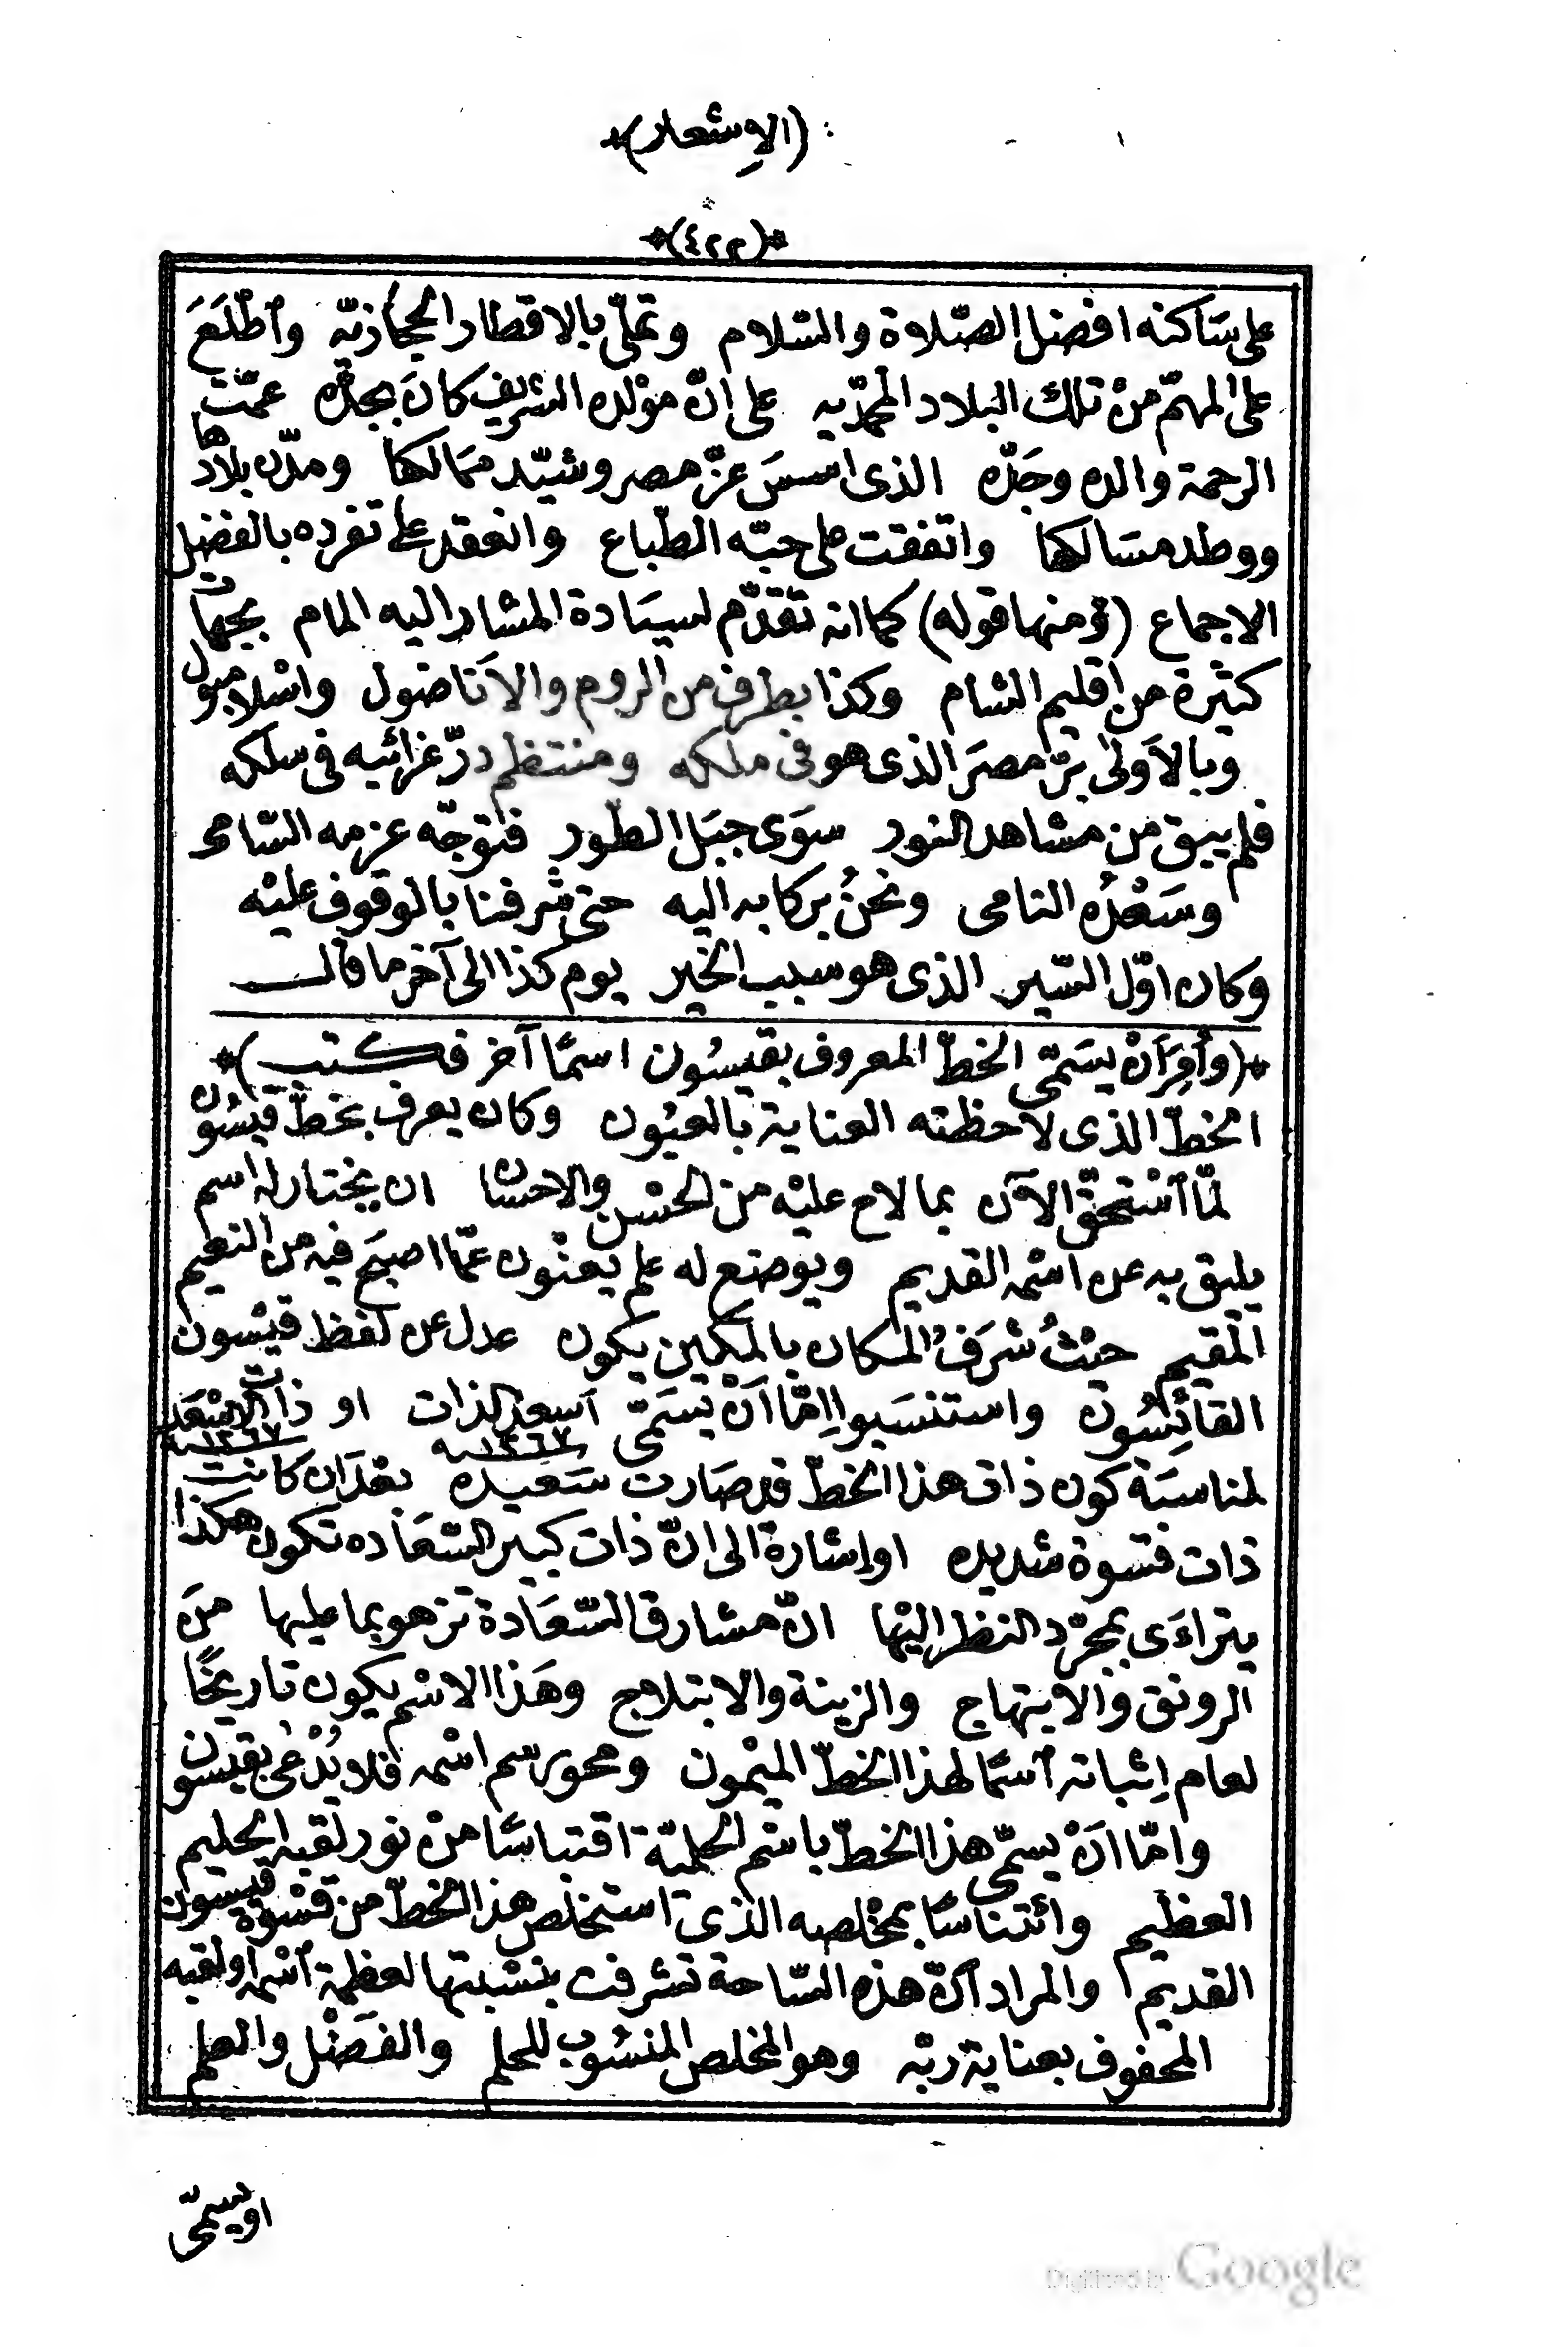 (الاِشعار)
(٤٢٢)
على سَاكنه افضل الصّلاة والسّلام وتملّى بالاقطار الحجازيّه وٱطّلَعَ
على المهمّ من تلك البلاد المحمّديه على انّ مولده الشريف كانَ بجدّه عمّت
الرحمة والده وجَدّه الذى اسسَ عزّ مصر وشيّد ممَالكها ومدّن بلادها
ووطد مسَالكها واتفقت على حبّه الطّباع وانعقد على تفرده بالفضل
الاجماع (ومنها قوله) كما انه تقدّم لسيَادة المشار اليه المام بجهات
كثيرة من اقليم الشام وكذا بطرف من الروم والاَناضول واسْلامبول
وبالاَولىٰ برّ مصرَ الذى هو فى ملكه ومنتظم درّ غرائبه فى سلكه
فلم يبق من مشاهد النور سوَى جبَل الطّور فتوجّه عزمه السّامى
وسَعْدُه النامى ونحنُ بركابه اليه حتى شرفنا بالوقوف عليْه
وكان اوّل السّير الذى هو سبب الخير يوم كذا الى آخر ما قال
(وأُمِرَ اَنْ يسَمّى الخطّ المعروف بقيسُون اسمًا آخر فكتب)
الخطّ الذى لاحظته العناية بالعيُون وكان يعرف بخطّ قيسُون
لمّا ٱسْتحقّ الآن بما لاح عليْه من الحسْن والاحسَان ان يختار له اسم
يليق به عن اسْمه القديم ويوضع له علم يعنْون عمّا اصبحَ فيه من النعيم
المقيم حيْثُ شرَفُ المكان بالمكين يكون عدل عن لفظ قيْسون
القائِسُون واستنسَبوا اِمّا اَنْ يسَمّى ٱسعد الذات او ذات الاسْعَد
١٢٦٧ سنه ١٢٦٧ سنه
لمناسبَة كون ذات هذا الخطّ قد صَارت سَعيده بعْدَ ان كانت
ذات قسوة شديده او اِشارة الى انّ ذات كبير السّعَاده تكون هكذا
يتراءَى بمجرّد النظر اليْها انّ مشارق السّعَادة تزهو بما عليها منَ
الرونق والابتهاج والزينة والابتلاج وهَذا الاسْم يكون تاريخًا
لعام اِثباته ٱسمًا لهذا الخطّ الميْمون ومحو رسم اسْمه فلا يُدْعىٰ بقيسون
وامّا اَنْ يسمّى هذا الخطّ باسْم الحلميّة اقتباسًا منْ نور لقبه الحليم
العظيم وائتناسًا بمخْلصه الذى استخلص هذا الخطّ من قسْوة قيسون
القديم والمراد اَنّ هذه السّاحة تشرفت بنسْبتها لعظمة ٱسْمه او لقبه
المحفوف بعناية ربّه وهو المخلص المنسُوب للحلم والفَضْل والعلم
او يسمّى
Digitized by Google